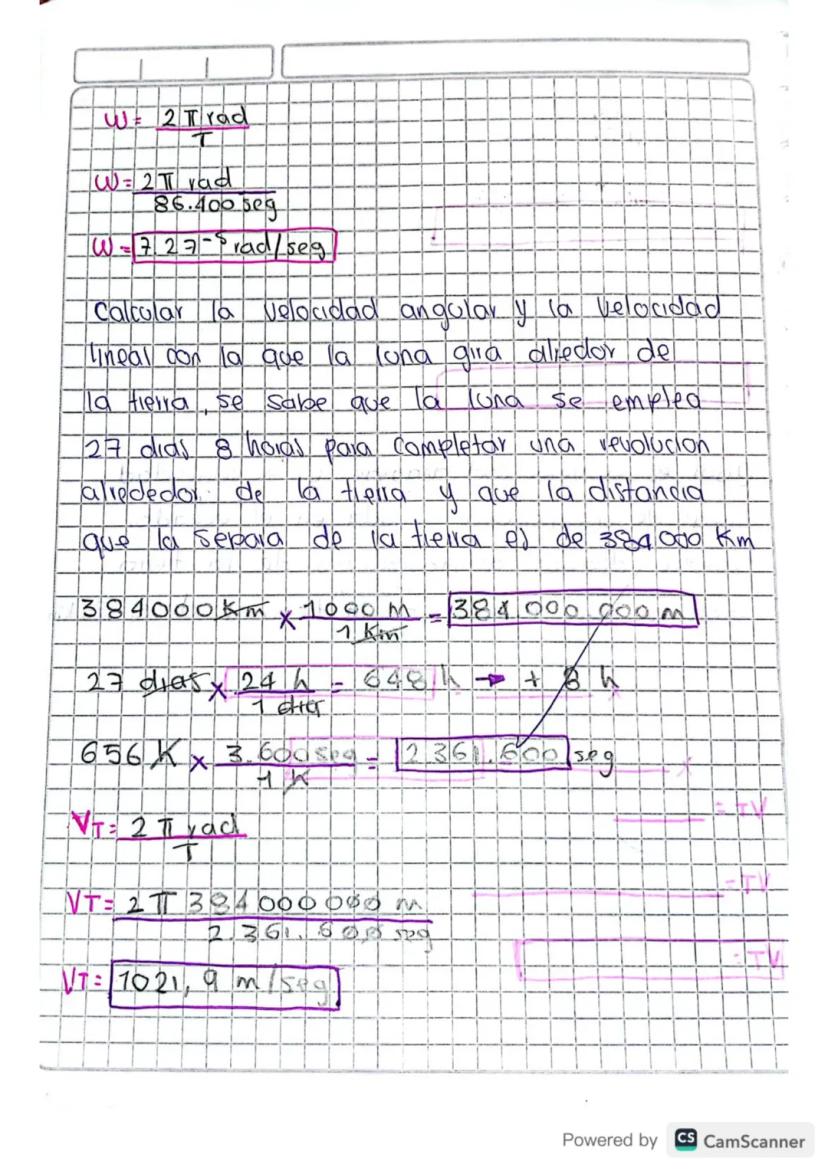 W = 2 π rad
T
W = 2 π rad
86.400 seg
W = 7.27⁻⁵ rad/seg
Calcular la velocidad angular y la velocidad
lineal con la que la luna gira alredor de
la tierra, se sabe que la luna se emplea
27 dias 8 horas para completar una revolucion
alrededor de la tierra y que la distancia
que la separa de la tierra es de 384 000 Km
384000 Km x 1000 M = 384 000 000 m
1 Km
27 dias x 24 h = 648 h → + 8 h
1 dia
656 h x 3.600 seg = 2.361.600 seg
1 h
VT = 2 π rad
T
VT = 2 π 384 000 000 m
2.361.600 seg
VT = 1021,9 m/seg
Powered by CS CamScanner